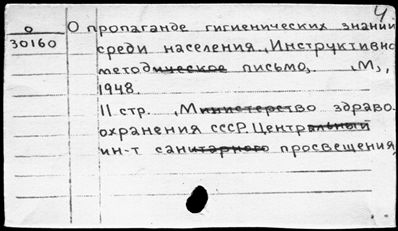 4.
О
30160
О пропаганде гигиенических знаний
среди населения. Инструктивно
методическое письмо, М.,
1948.
11 стр. М̶инистерство здраво.
охранения СССР. Центральный
ин-т санитарного просвещения,